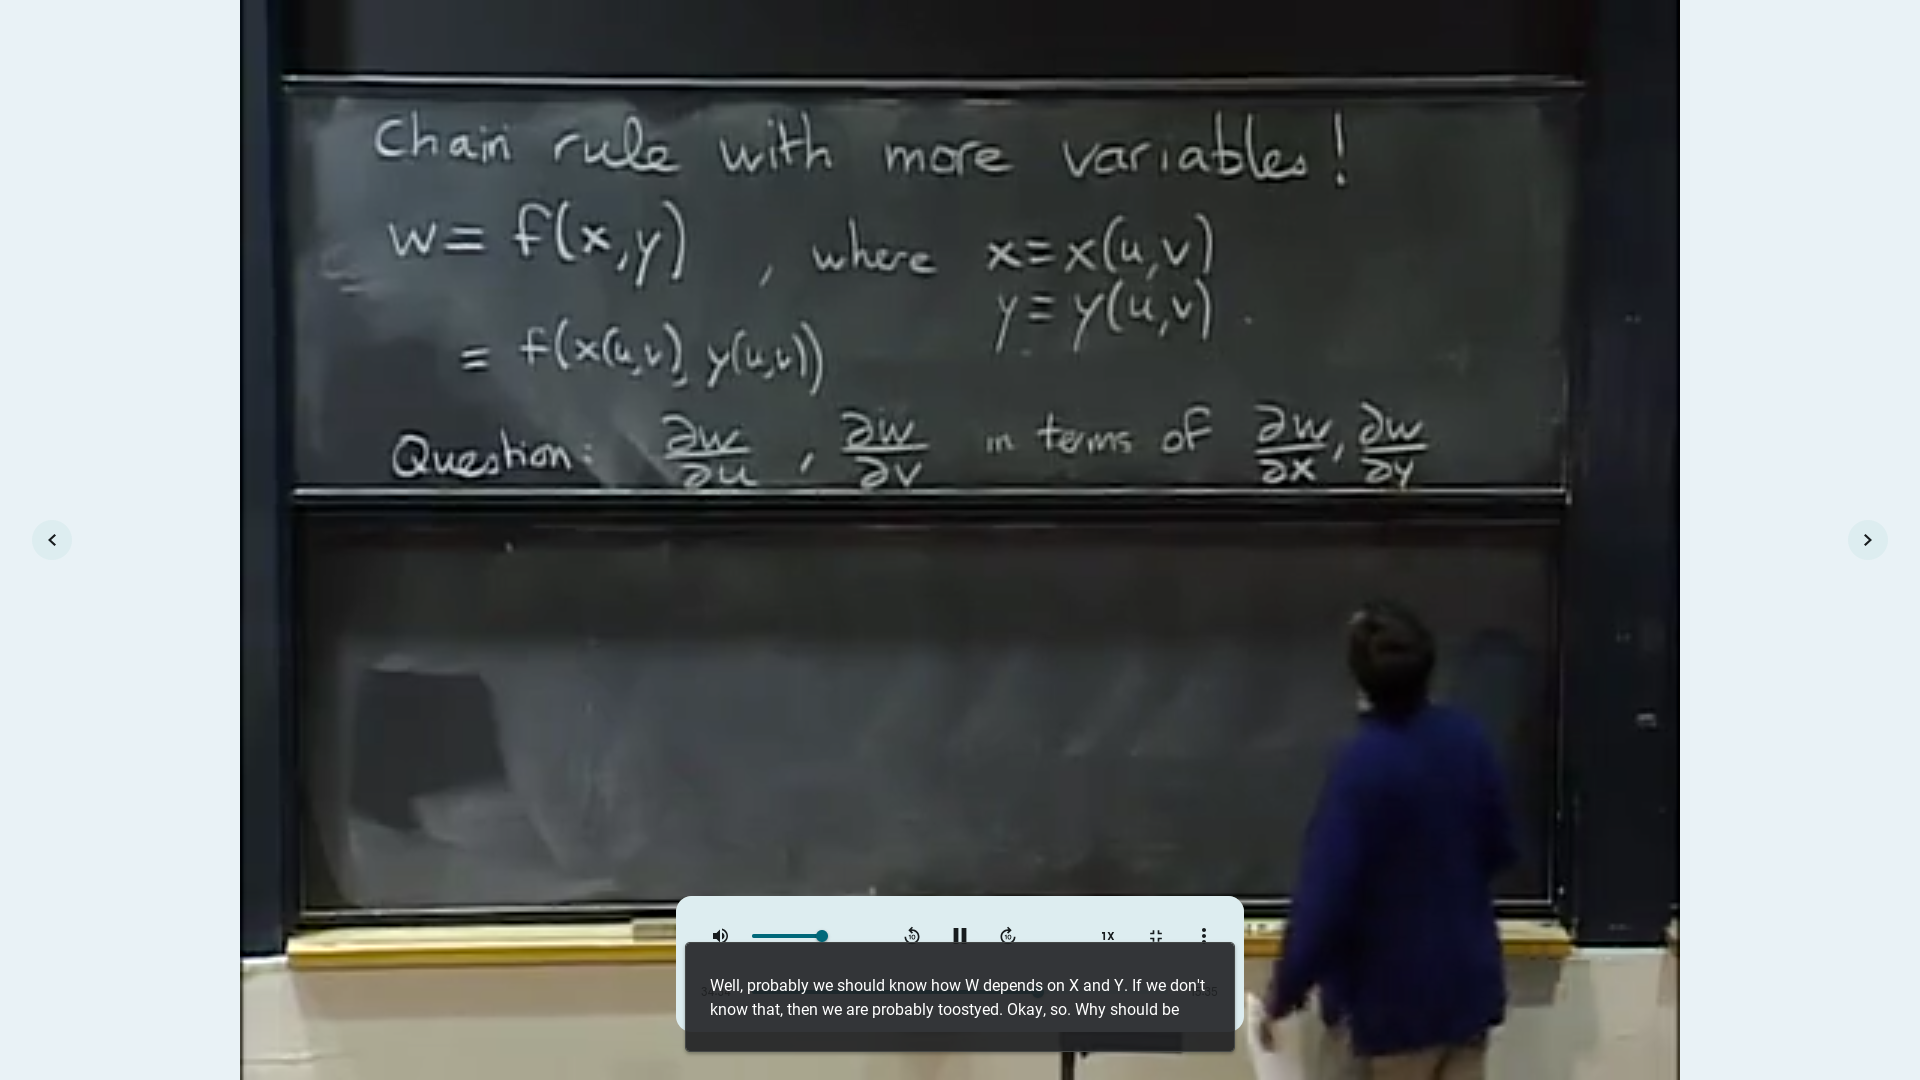 Chain rule with more variables!
w = f(x,y) , where x = x(u,v)
y = y(u,v).
= f(x(u,v), y(u,v))
Question: ∂w/∂u , ∂w/∂v in terms of ∂w/∂x, ∂w/∂y
10 10 1X
Well, probably we should know how W depends on X and Y. If we don't
know that, then we are probably toostyed. Okay, so. Why should be